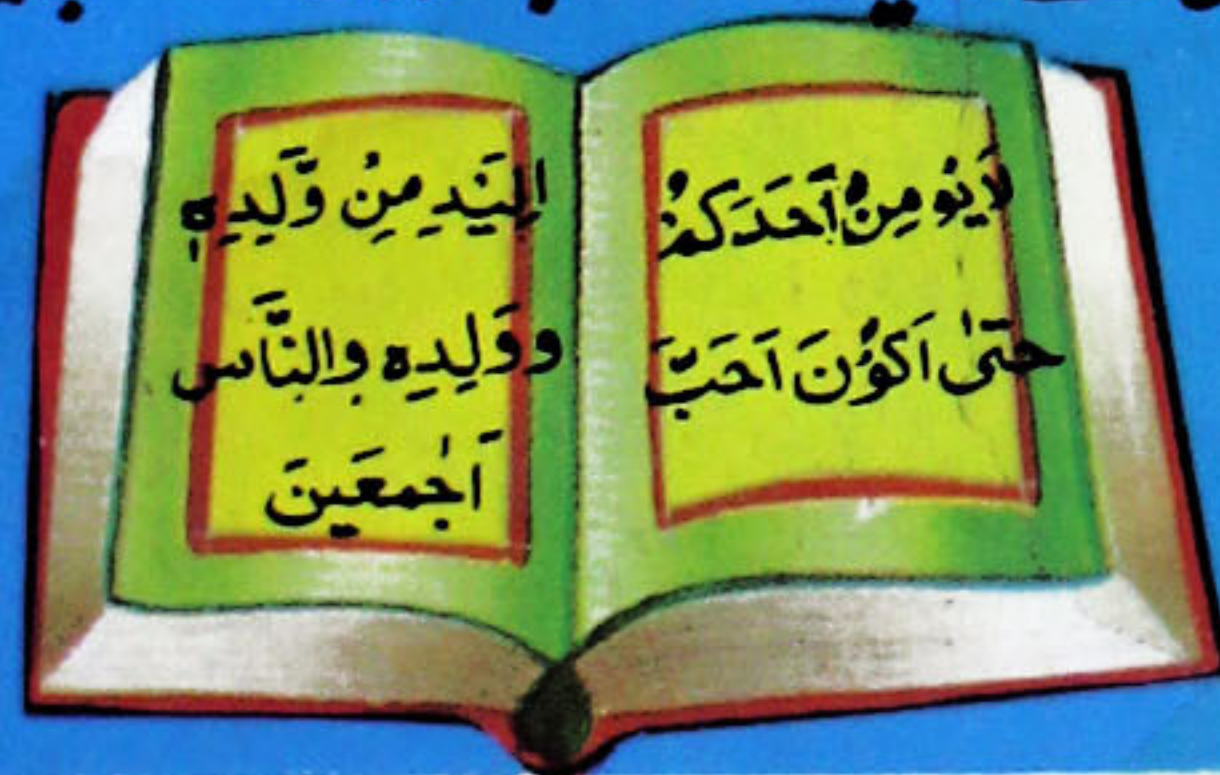 لَا يُؤمِنُ أَحَدَكُمْ
حَتىٰ اَكُوْنَ اَحَبَّ
اِلَيَدِ مِنْ وَّلِدِهٖ
وَوَلِدِهِ وَالنَّاس
اَجْمَعَينَ